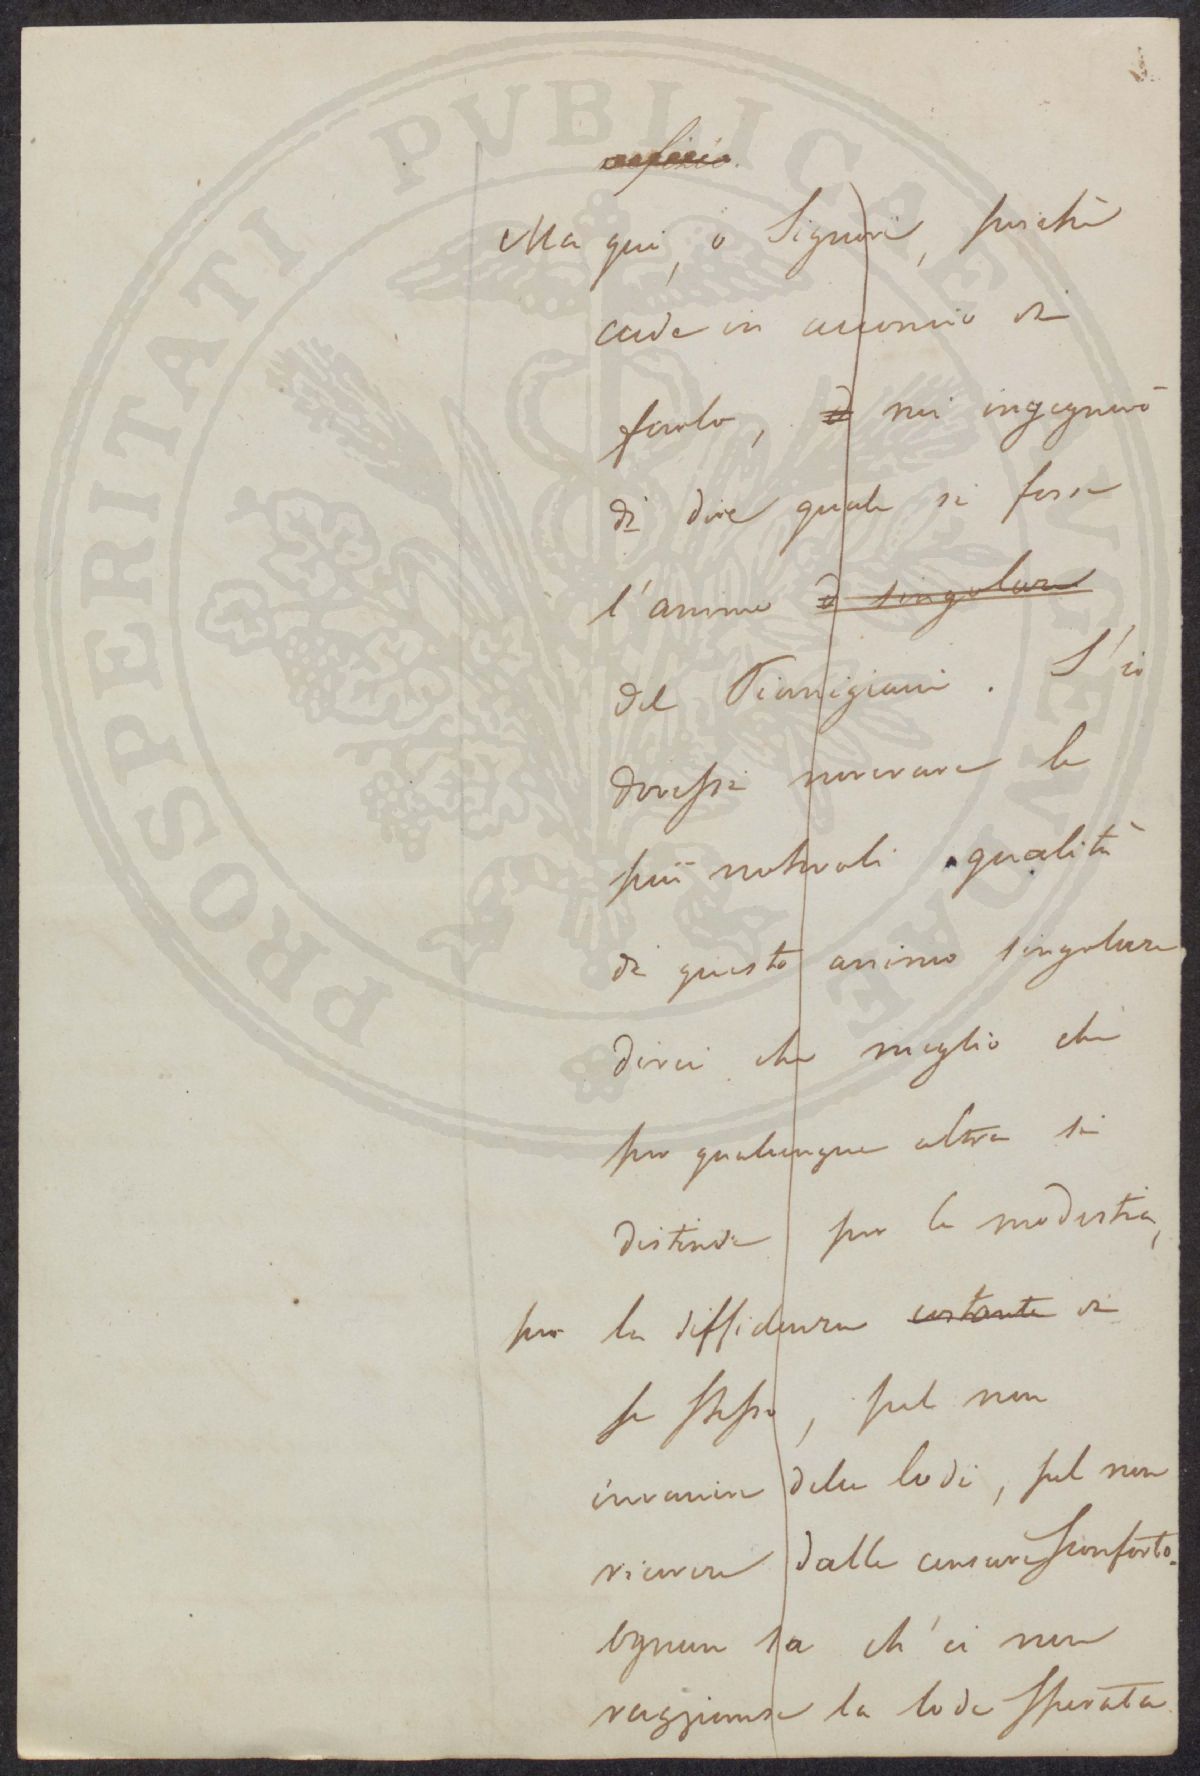 Ma qui, o Signori, poichè
cade in acconcio di
farlo, mi ingegnerò
di dire quale si fosse
l'animo di singolare
del Pianigiani. S'io
dovessi noverare le
più naturali qualità
di questo animo singolare
direi che meglio che
per qualunque altra si
distinse per la modestia,
per la diffidenza costante di
se stesso, pel non
invanire delle lodi, pel non
ricevere dalle censure sconforto.
Ognun sa ch'ei non
raggiunse la lode sperata
PROSPERITATI PVBLICAE AVGENDAE